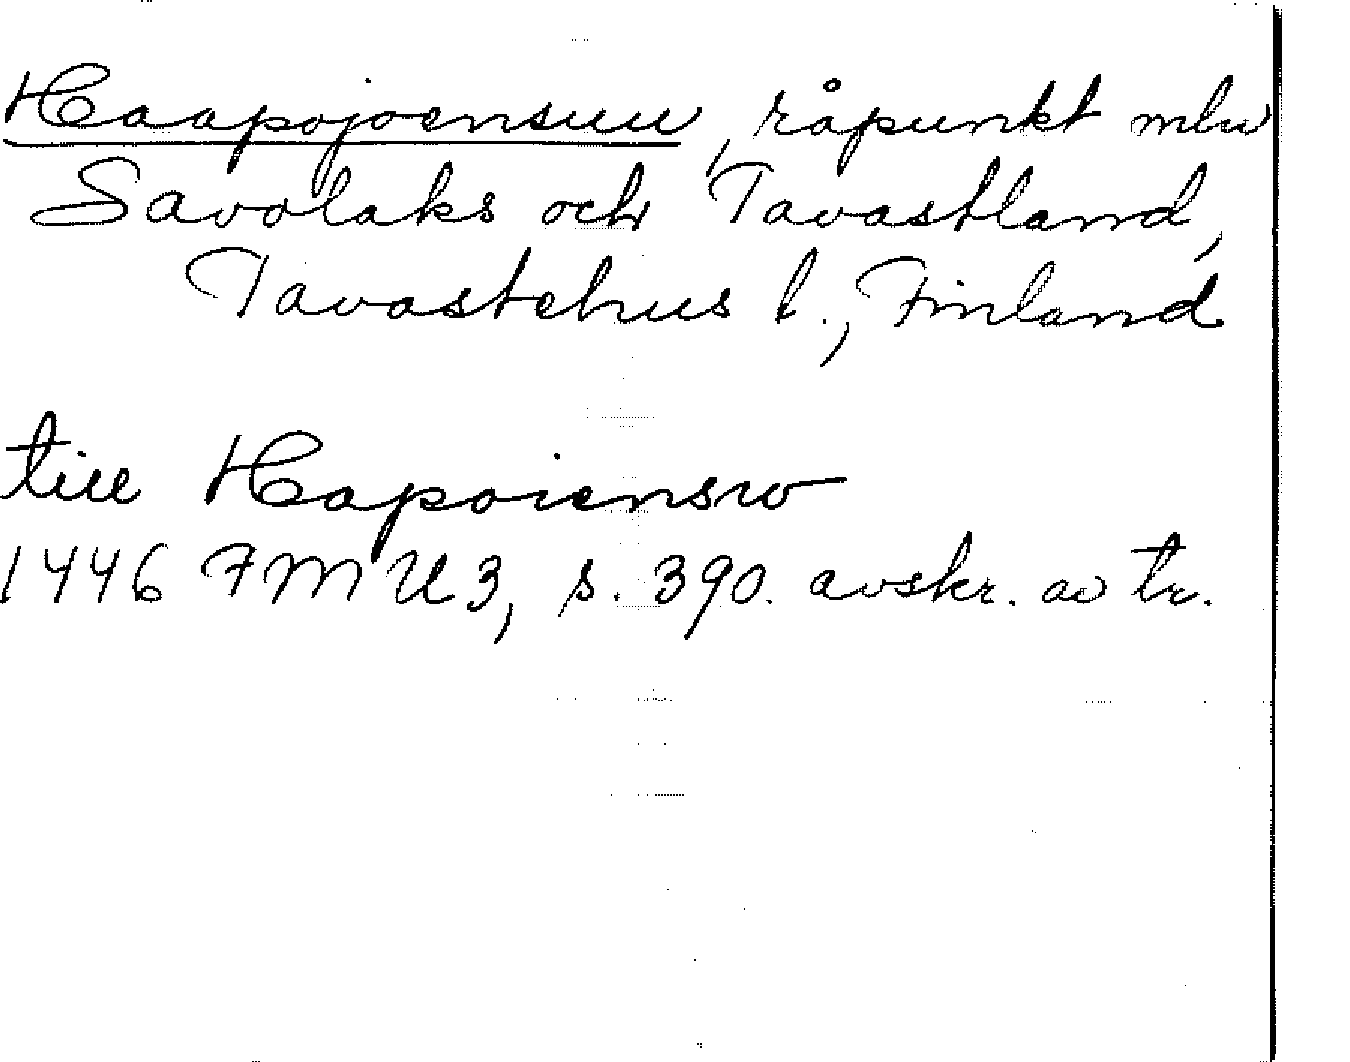 Haapojoensuu, råpunkt mln
Savolaks och Tavastland,
Tavastehus l., Finland
till Hapoiensw
1446 FMU 3, s. 390. avskr. av tr.